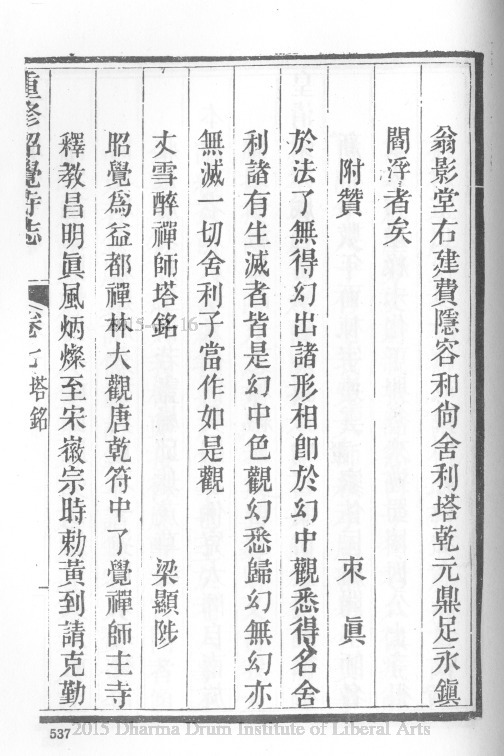 翁影堂右建費隱容和尙舍利塔乾元鼎足永鎭
閻浮者矣
附贊 朿眞
於法了無得幻出諸形相卽於幻中觀悉得名舍
利諸有生滅者皆是幻中色觀幻悉歸幻無幻亦
無滅一切舍利子當作如是觀
丈雪醉禪師塔銘 梁顯陟
昭覺爲益都禪林大觀唐乾符中了覺禪師主寺
釋教昌明眞風炳燦至宋徽宗時勅黃到請克勤
重修昭覺寺志 卷七 塔銘
537
2015 Dharma Drum Institute of Liberal Arts